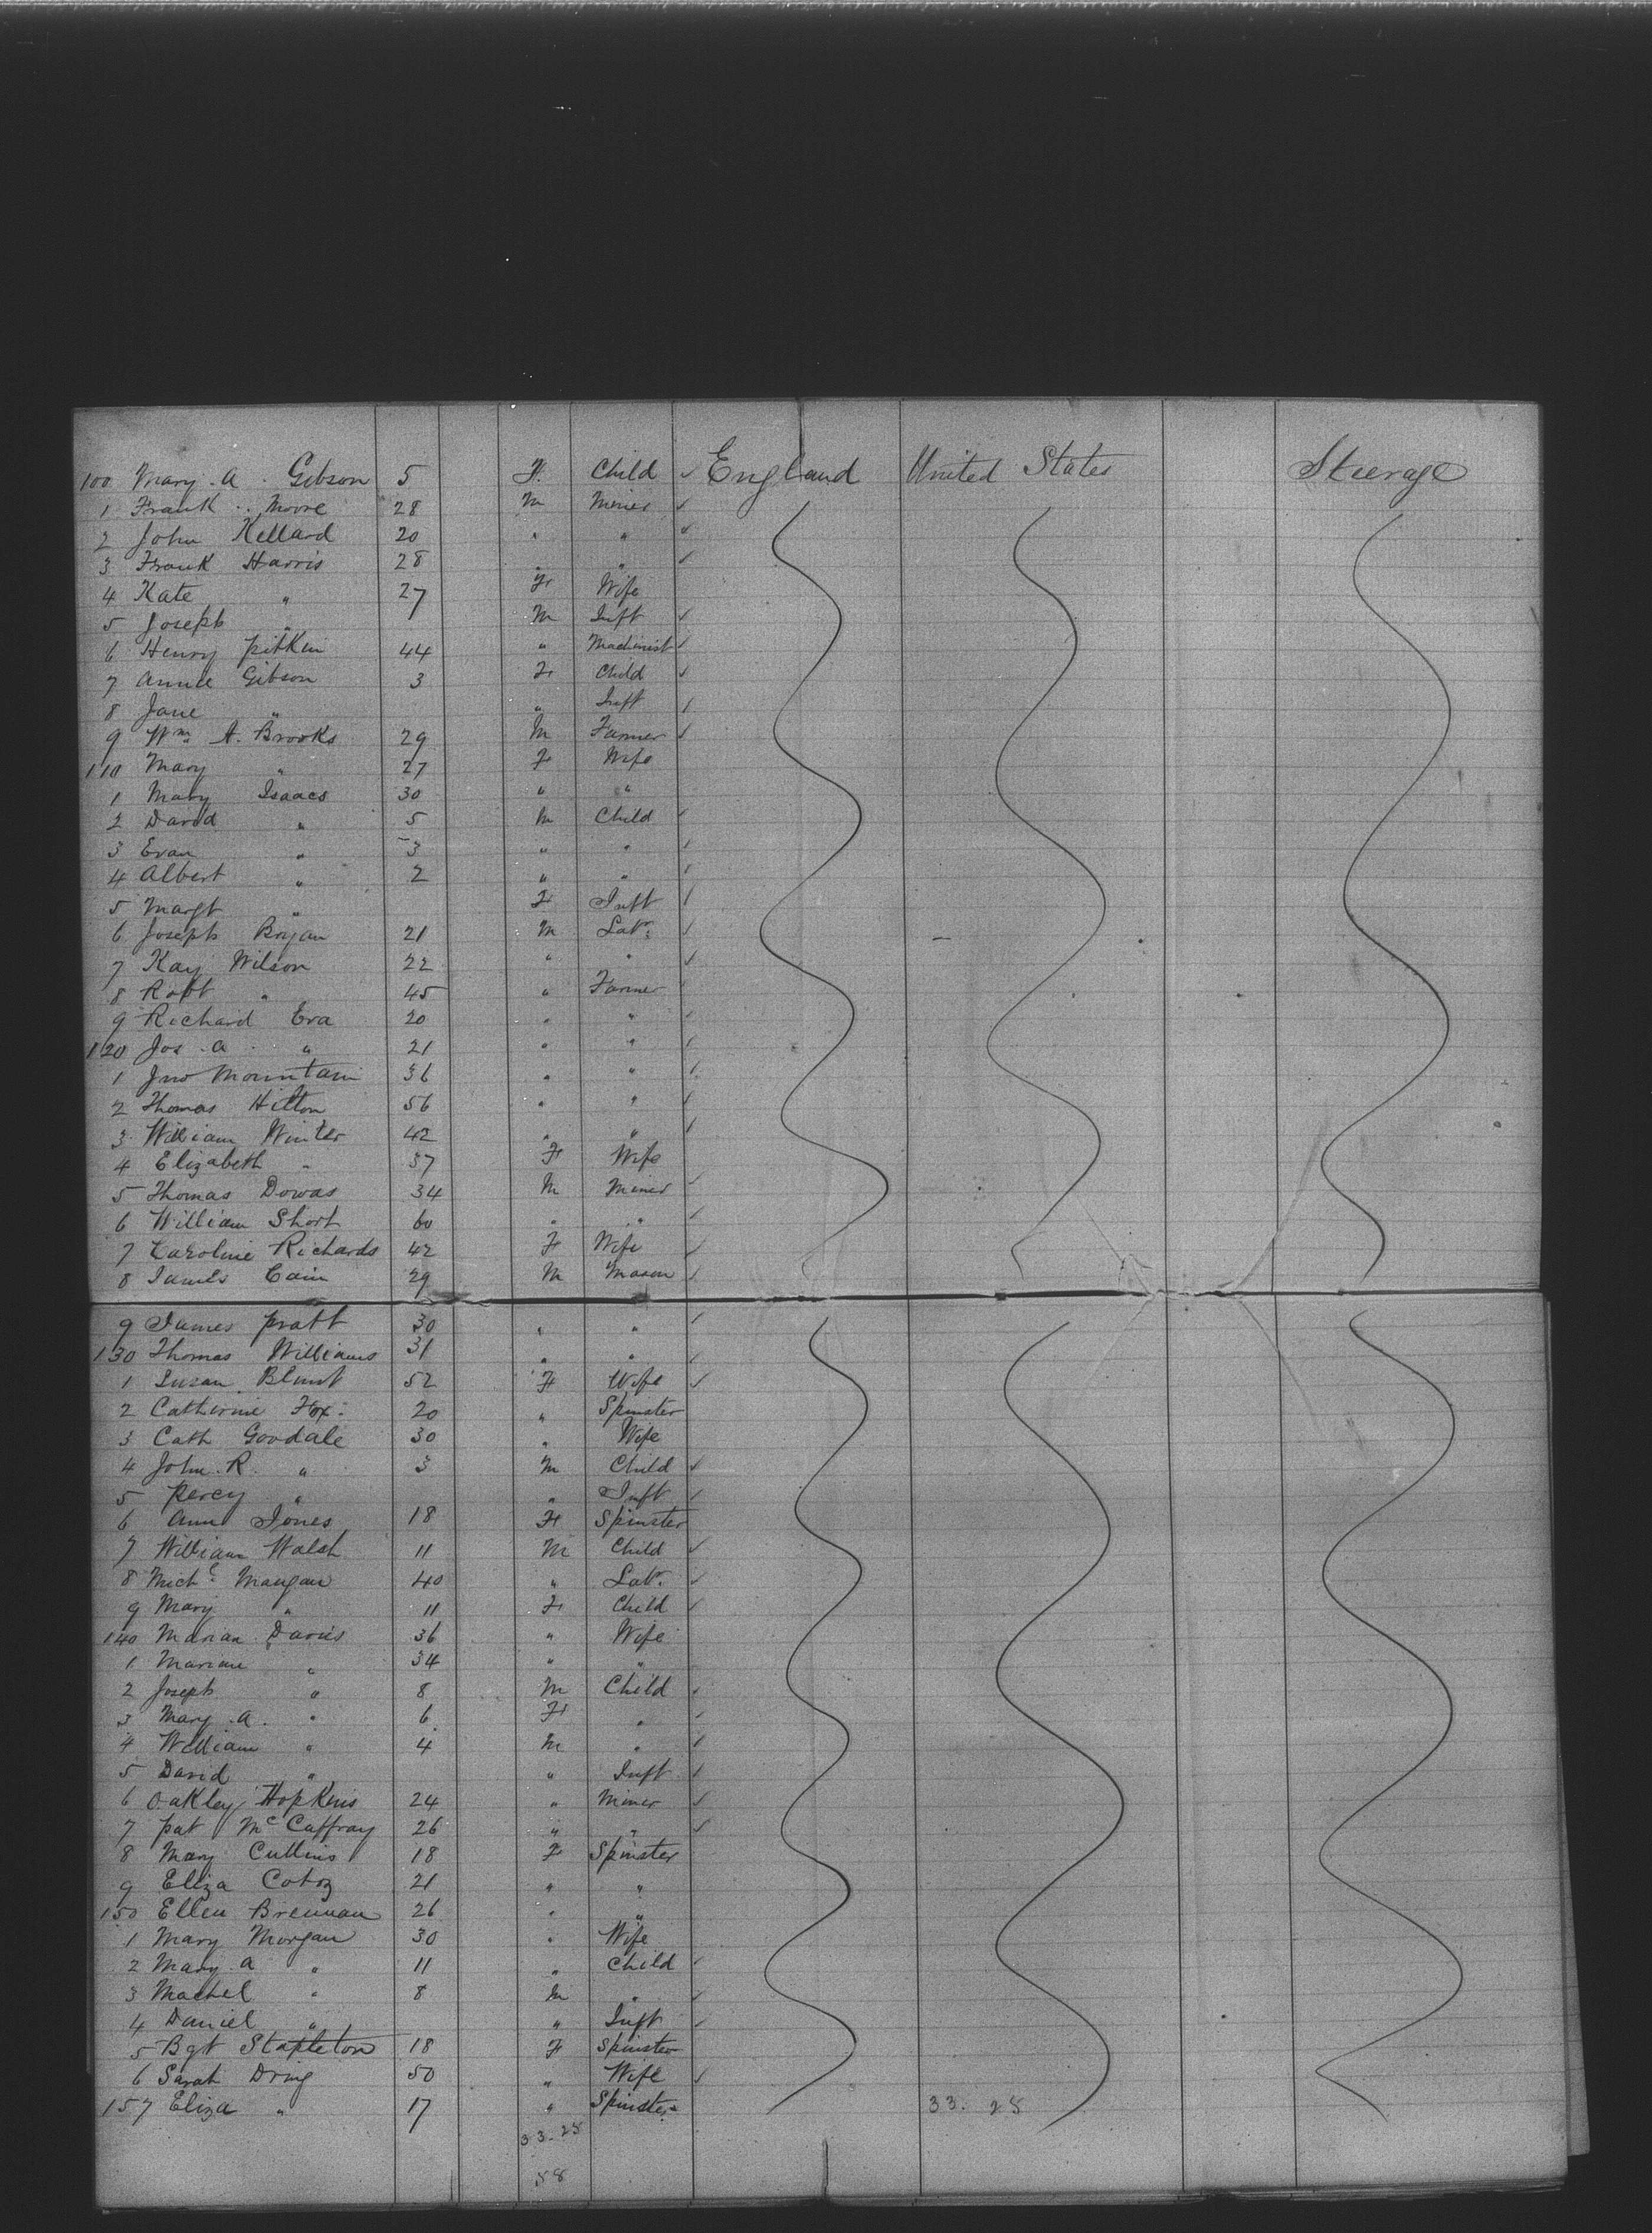 100 Mary. A. Gibson 5 F. Child ✓ England United States Steerage
1 Frank .. Moore 28 M Miner ✓
2 John Kellard 20 " " ✓
3 Frank Harris 28 " " ✓
4 Kate " 27 F Wife
5 Joseph " M Inft ✓
6 Henry Pitkin 44 " Machinist ✓
7 Annie Gibson 3 F Child ✓
8 Jane " " Inft ✓
9 Wm A. Brooks 29 M Farmer ✓
110 Mary " 27 F Wife
1 Mary Isaacs 30 " "
2 David " 5 M Child ✓
3 Evan " 3 " " ✓
4 Albert " 2 " " ✓
5 Margt " F Inft ✓
6 Joseph Bryan 21 M Labr. ✓
7 Kay Wilson 22 " " ✓
8 Robt " 45 " Farmer ✓
9 Richard Eva 20 " " ✓
120 Jos. A. " 21 " " ✓
1 Jno Mountain 36 " " ✓
2 Thomas Hilton 56 " " ✓
3 William Winter 42 " " ✓
4 Elizabeth " 37 F Wife
5 Thomas Dowas 34 M Miner ✓
6 William Short 60 " " ✓
7 Caroline Richards 42 F Wife ✓
8 James Cain 29 M Mason ✓
9 James Pratt 30 " " ✓
130 Thomas Williams 31 " " ✓
1 Susan Blunt 52 F Wife ✓
2 Catherine Fox. 20 " Spinster
3 Cath Goodale 30 " Wife
4 John. R. " 3 M Child ✓
5 Percy " " Inft ✓
6 Ann Jones 18 F Spinster
7 William Walsh 11 M Child ✓
8 Michl Mangan 40 " Labr. ✓
9 Mary " 11 F Child ✓
140 Marian Davis 36 " Wife
1 " 34 " "
2 Joseph " 8 M Child ✓
3 Mary. A. " 6 F " ✓
4 William " 4 M " ✓
5 David " " Inft ✓
6 Oakley Hopkins 24 " Miner ✓
7 Pat McCaffray 26 " " ✓
8 Mary Cullins 18 F Spinster
9 Eliza 21 " "
150 Ellen Brennan 26 " "
1 Mary Morgan 30 " Wife
2 Mary A " 11 " Child ✓
3 Machel " 8 M " ✓
4 Daniel " " Inft ✓
5 Bgt Stapleton 18 F Spinster
6 Sarah Dring 50 " Wife ✓
157 Eliza " 17 " Spinster 33. 25
33-25
58